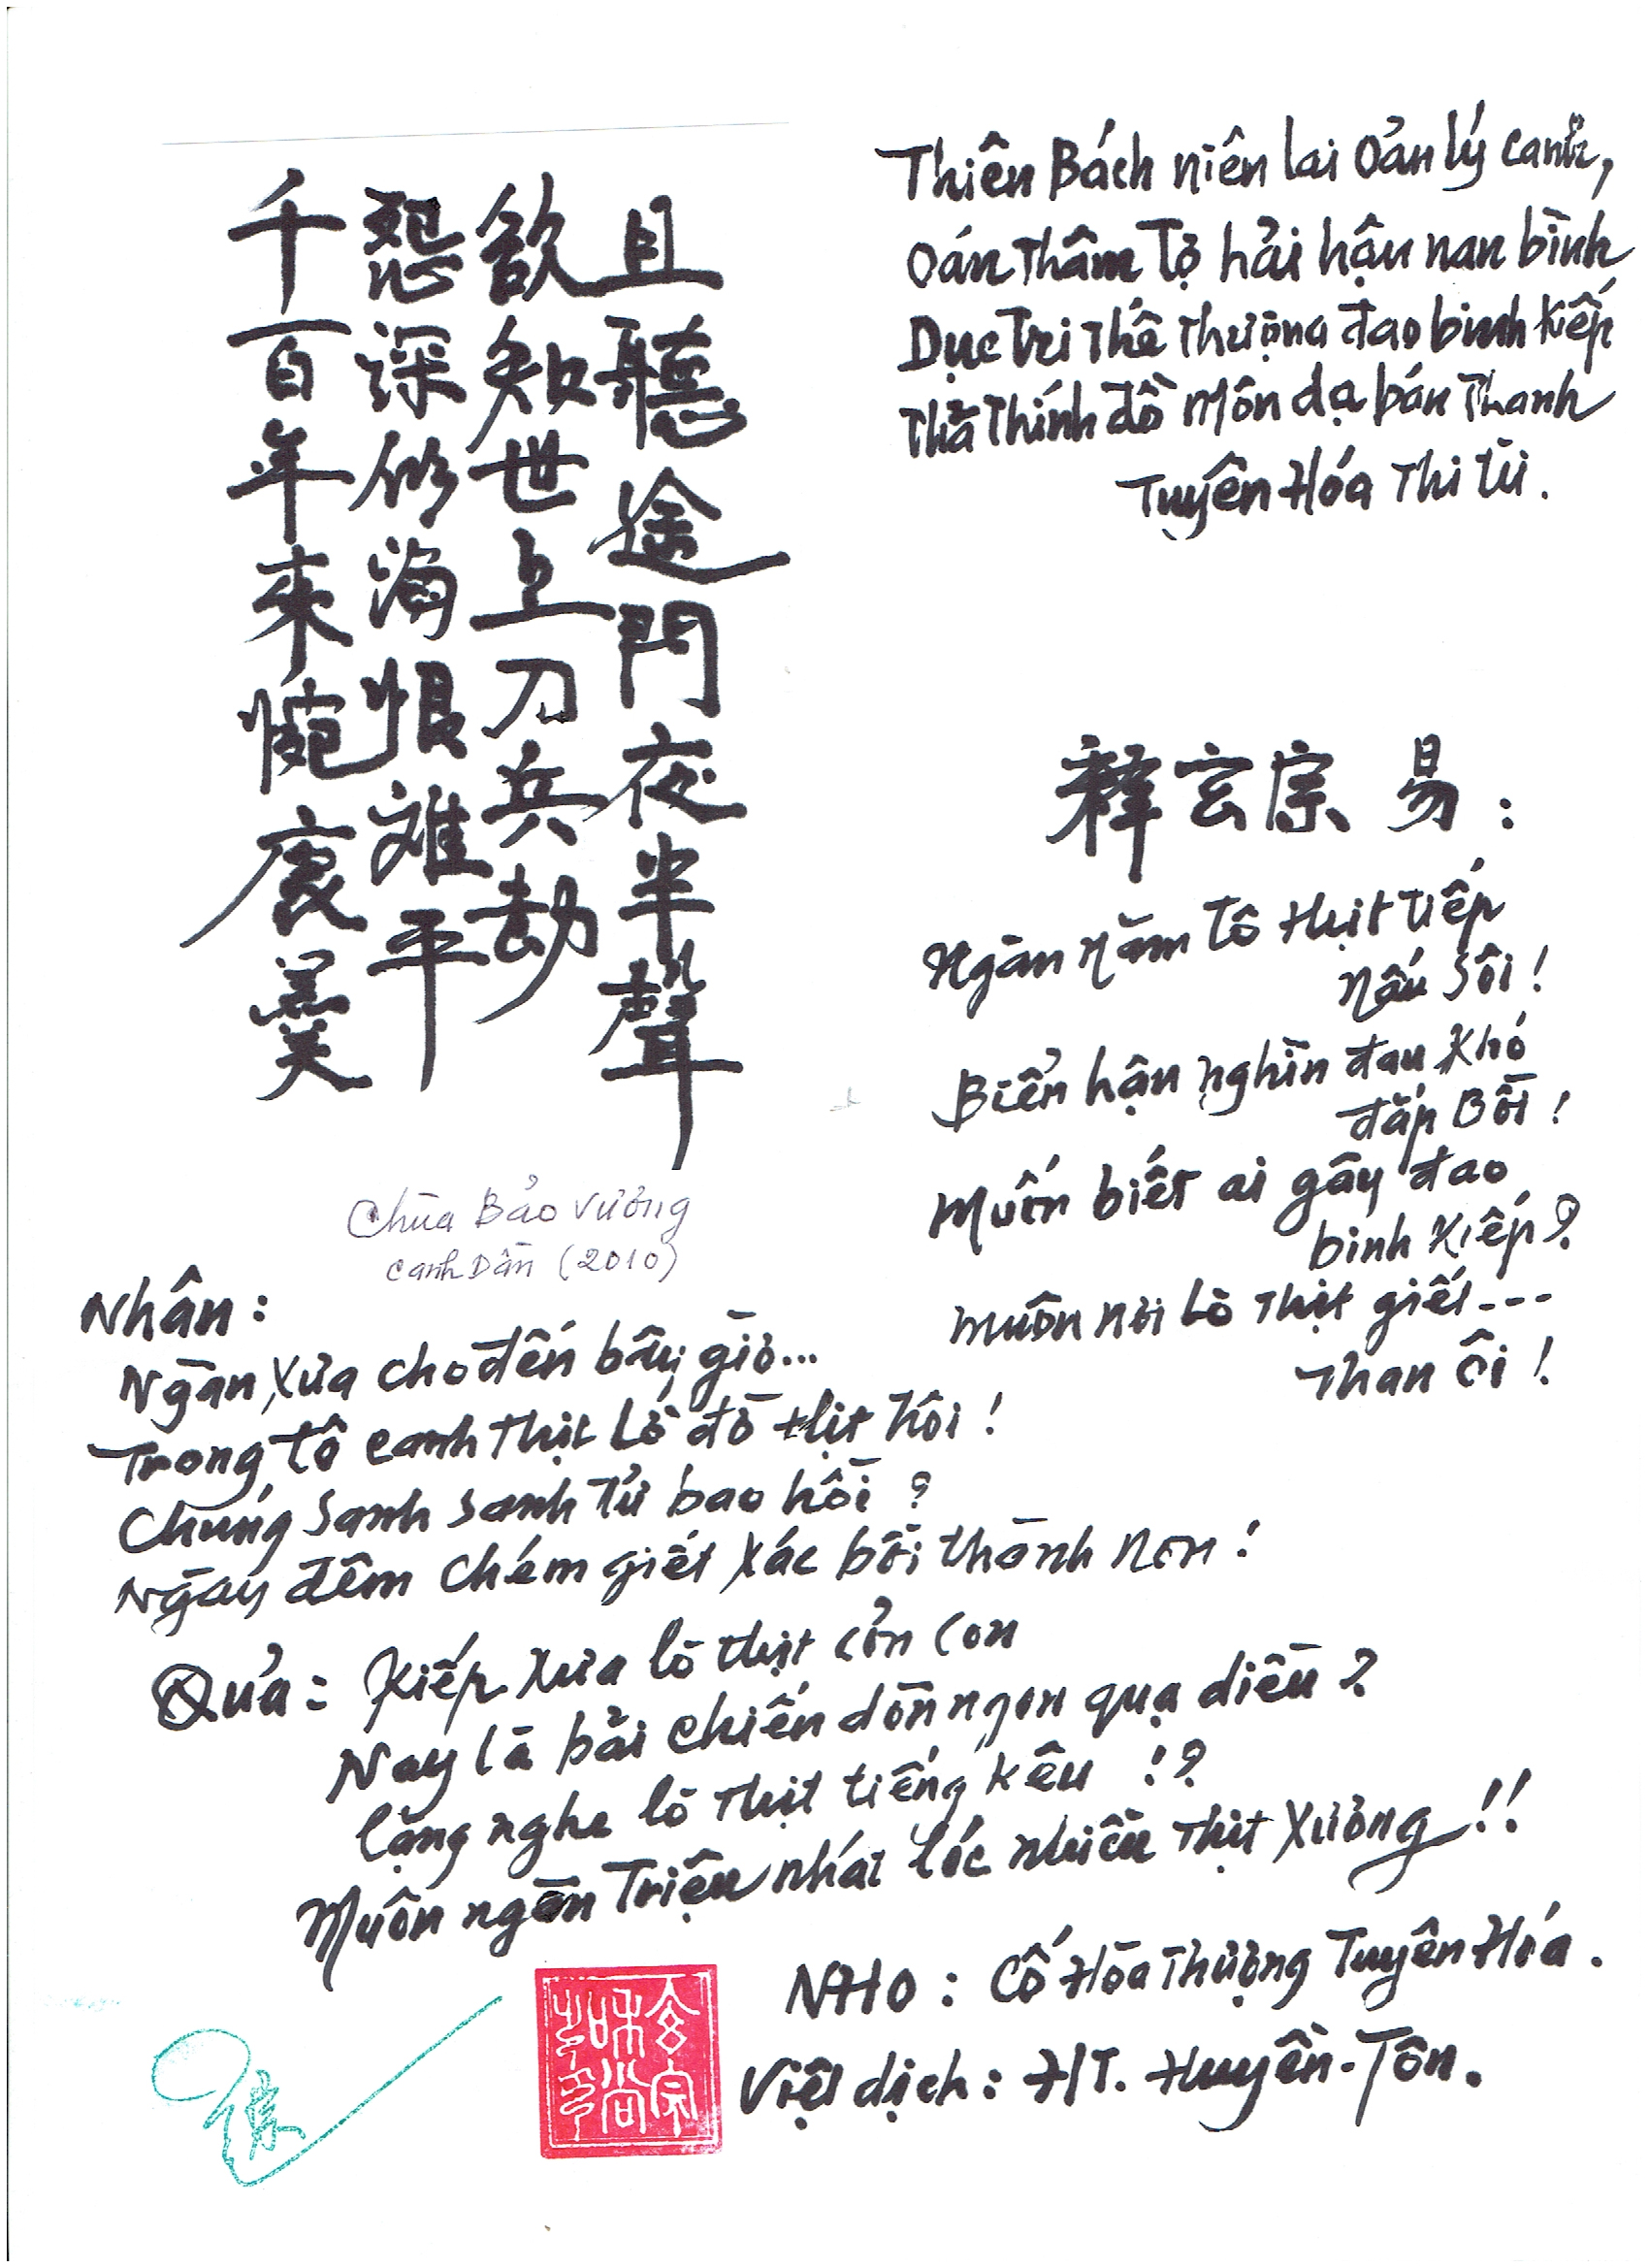 千百年來惋裏羹
怨深似海恨難平
欲知世上刀兵劫
且聽途門夜半聲
Chùa Bảo Vương
Canh Dần (2010)
Thiên Bách niên lai oản lý canh,
Oán Thâm Tợ hải hậu nan bình
Dục Tri Thế Thượng đao binh Kiếp
Thả Thính đồ Môn dạ bán Thanh
Tuyên Hóa Thi từ.
釋玄宗 易:
Ngàn Năm Tô thịt tiếp
Nấu Sôi!
Biển hận nghìn đau Khó
đắp Bồi!
Muốn biết ai gây đao
binh Kiếp?
Muôn nơi Lò Thịt giết---
Than ôi!
Nhân:
Ngàn Xưa cho đến bây giờ...
Trong tô canh Thịt Lờ đờ thịt hôi!
Chúng Sanh Sanh Tử bao hồi?
Ngày đêm Chém giết Xác bồi thành Non!
Quả: Kiếp Xưa lò thịt cỏn con
Nay là bãi chiến dồn ngon quạ diều?
Lặng nghe lò Thịt tiếng kêu!?
Muôn ngàn Triệu nhát lóc nhiều Thịt Xương!!
NHO: Cố Hòa Thượng Tuyên Hóa.
Việt dịch: HT. Huyền-Tôn.
玄宗
和尚
之印